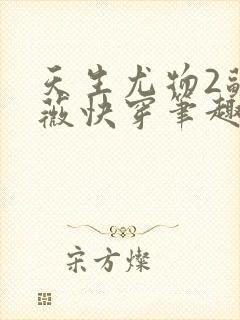 天生尤物2
薇快穿笔趣
宋方燦